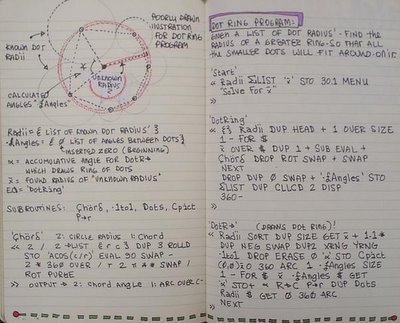 POORLY DRAWN
ILLUSTRATION
FOR DOT RING
PROGRAM
KNOWN DOT
RADII
UNKNOWN
RADIUS
CALCULATED
ANGLES
Radii = { LIST OF KNOWN DOT RADIUS' }
Angles = { 0 LIST OF ANGLES BETWEEN DOTS }
INSERTED ZERO (BEGINNING)
α = ACCUMULATIVE ANGLE FOR DotR→
WHICH DRAWS RING OF DOTS
x̄ = FOUND RADIUS OF "UNKNOWN RADIUS"
EQ = 'DotRing'
SUBROUTINES: Dots, Cpict
P→r
2: CIRCLE RADIUS 1: CHORD
« 2 / 2 →LIST { r c } DUP 3 ROLLD
STO 'ACOS(c/r)' EVAL 90 SWAP -
2 * 360 OVER / r 2 π * * SWAP /
ROT PURGE
» OUTPUT → 2: CHORD ANGLE 1: ARC OVER C
DOT RING PROGRAM:
GIVEN A LIST OF DOT RADIUS' - FIND THE
RADIUS OF A GREATER RING - SO THAT ALL
THE SMALLER DOTS WILL FIT AROUND ON IT
'Start'
« Radii ΣLIST 'x̄' STO 30.1 MENU
"Solve for x̄"
»
'DotRing'
« {} Radii DUP HEAD + 1 OVER SIZE
1 - FOR $
x̄ OVER $ DUP 1 + SUB EVAL +
DROP ROT SWAP + SWAP
NEXT
DROP DUP 0 SWAP + Angles' STO
ΣLIST DUP CLLCD 2 DISP
360 -
»
'DotR→' (DRAWS DOT RING)!
« Radii SORT DUP SIZE GET x̄ + 1.1 *
DUP NEG SWAP DUP2 XRNG YRNG
DROP ERASE 0 'α' STO Cpict
(0,0) x̄ 0 360 ARC 1 Angles SIZE
1 - FOR $ x̄ Angles $ GET
'α' STO+ α R→C P→r DUP Dots
Radii $ GET 0 360 ARC
» NEXT